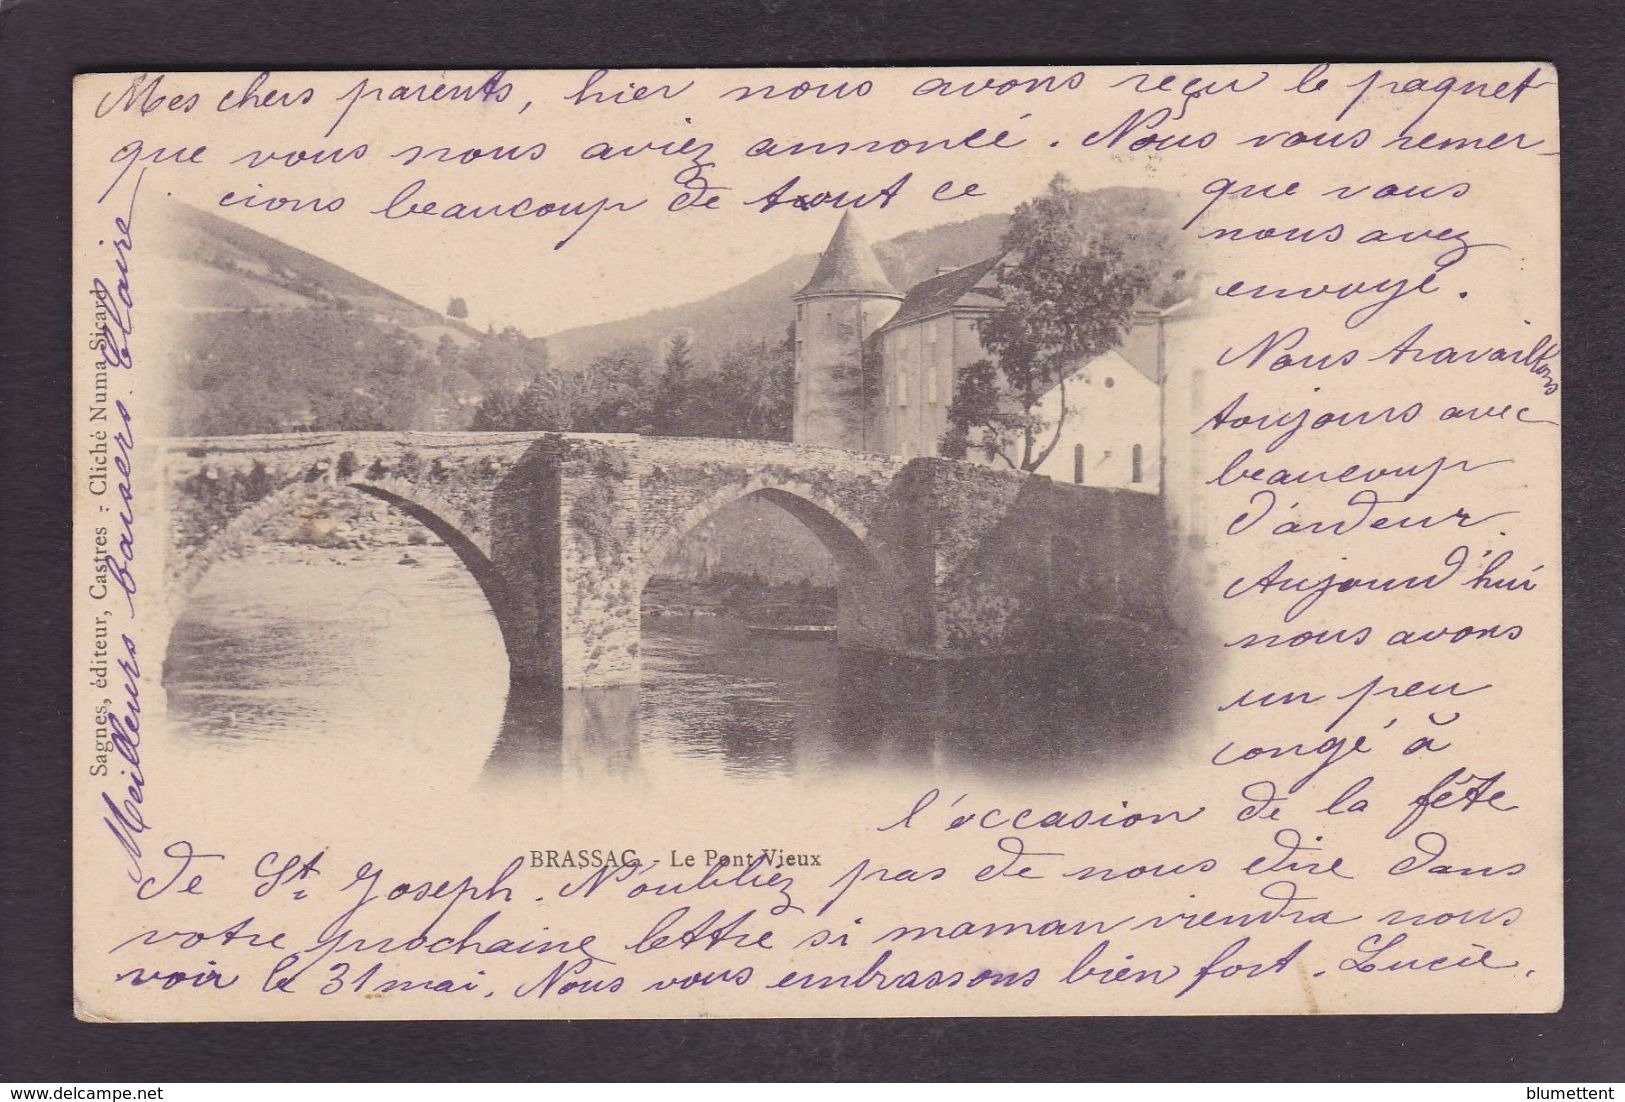 Mes chers parents, hier nous avons reçu le paquet
que vous nous aviez annoncé. Nous vous remer-
cions beaucoup de tout ce
que vous
nous avez
envoyé.
Nous travaillons
toujours avec
beaucoup
d'ardeur.
Aujourd'hui
nous avons
un peu
congé à
l'occasion de la fête
de St Joseph. N'oubliez pas de nous dire dans
votre prochaine lettre si maman viendra nous
voir le 31 mai. Nous vous embrassons bien fort. Lucie.
Meilleurs baisers. Claire
Sagnes, éditeur, Castres - Cliché Numa Sicard
BRASSAC - Le Pont Vieux
blumettent